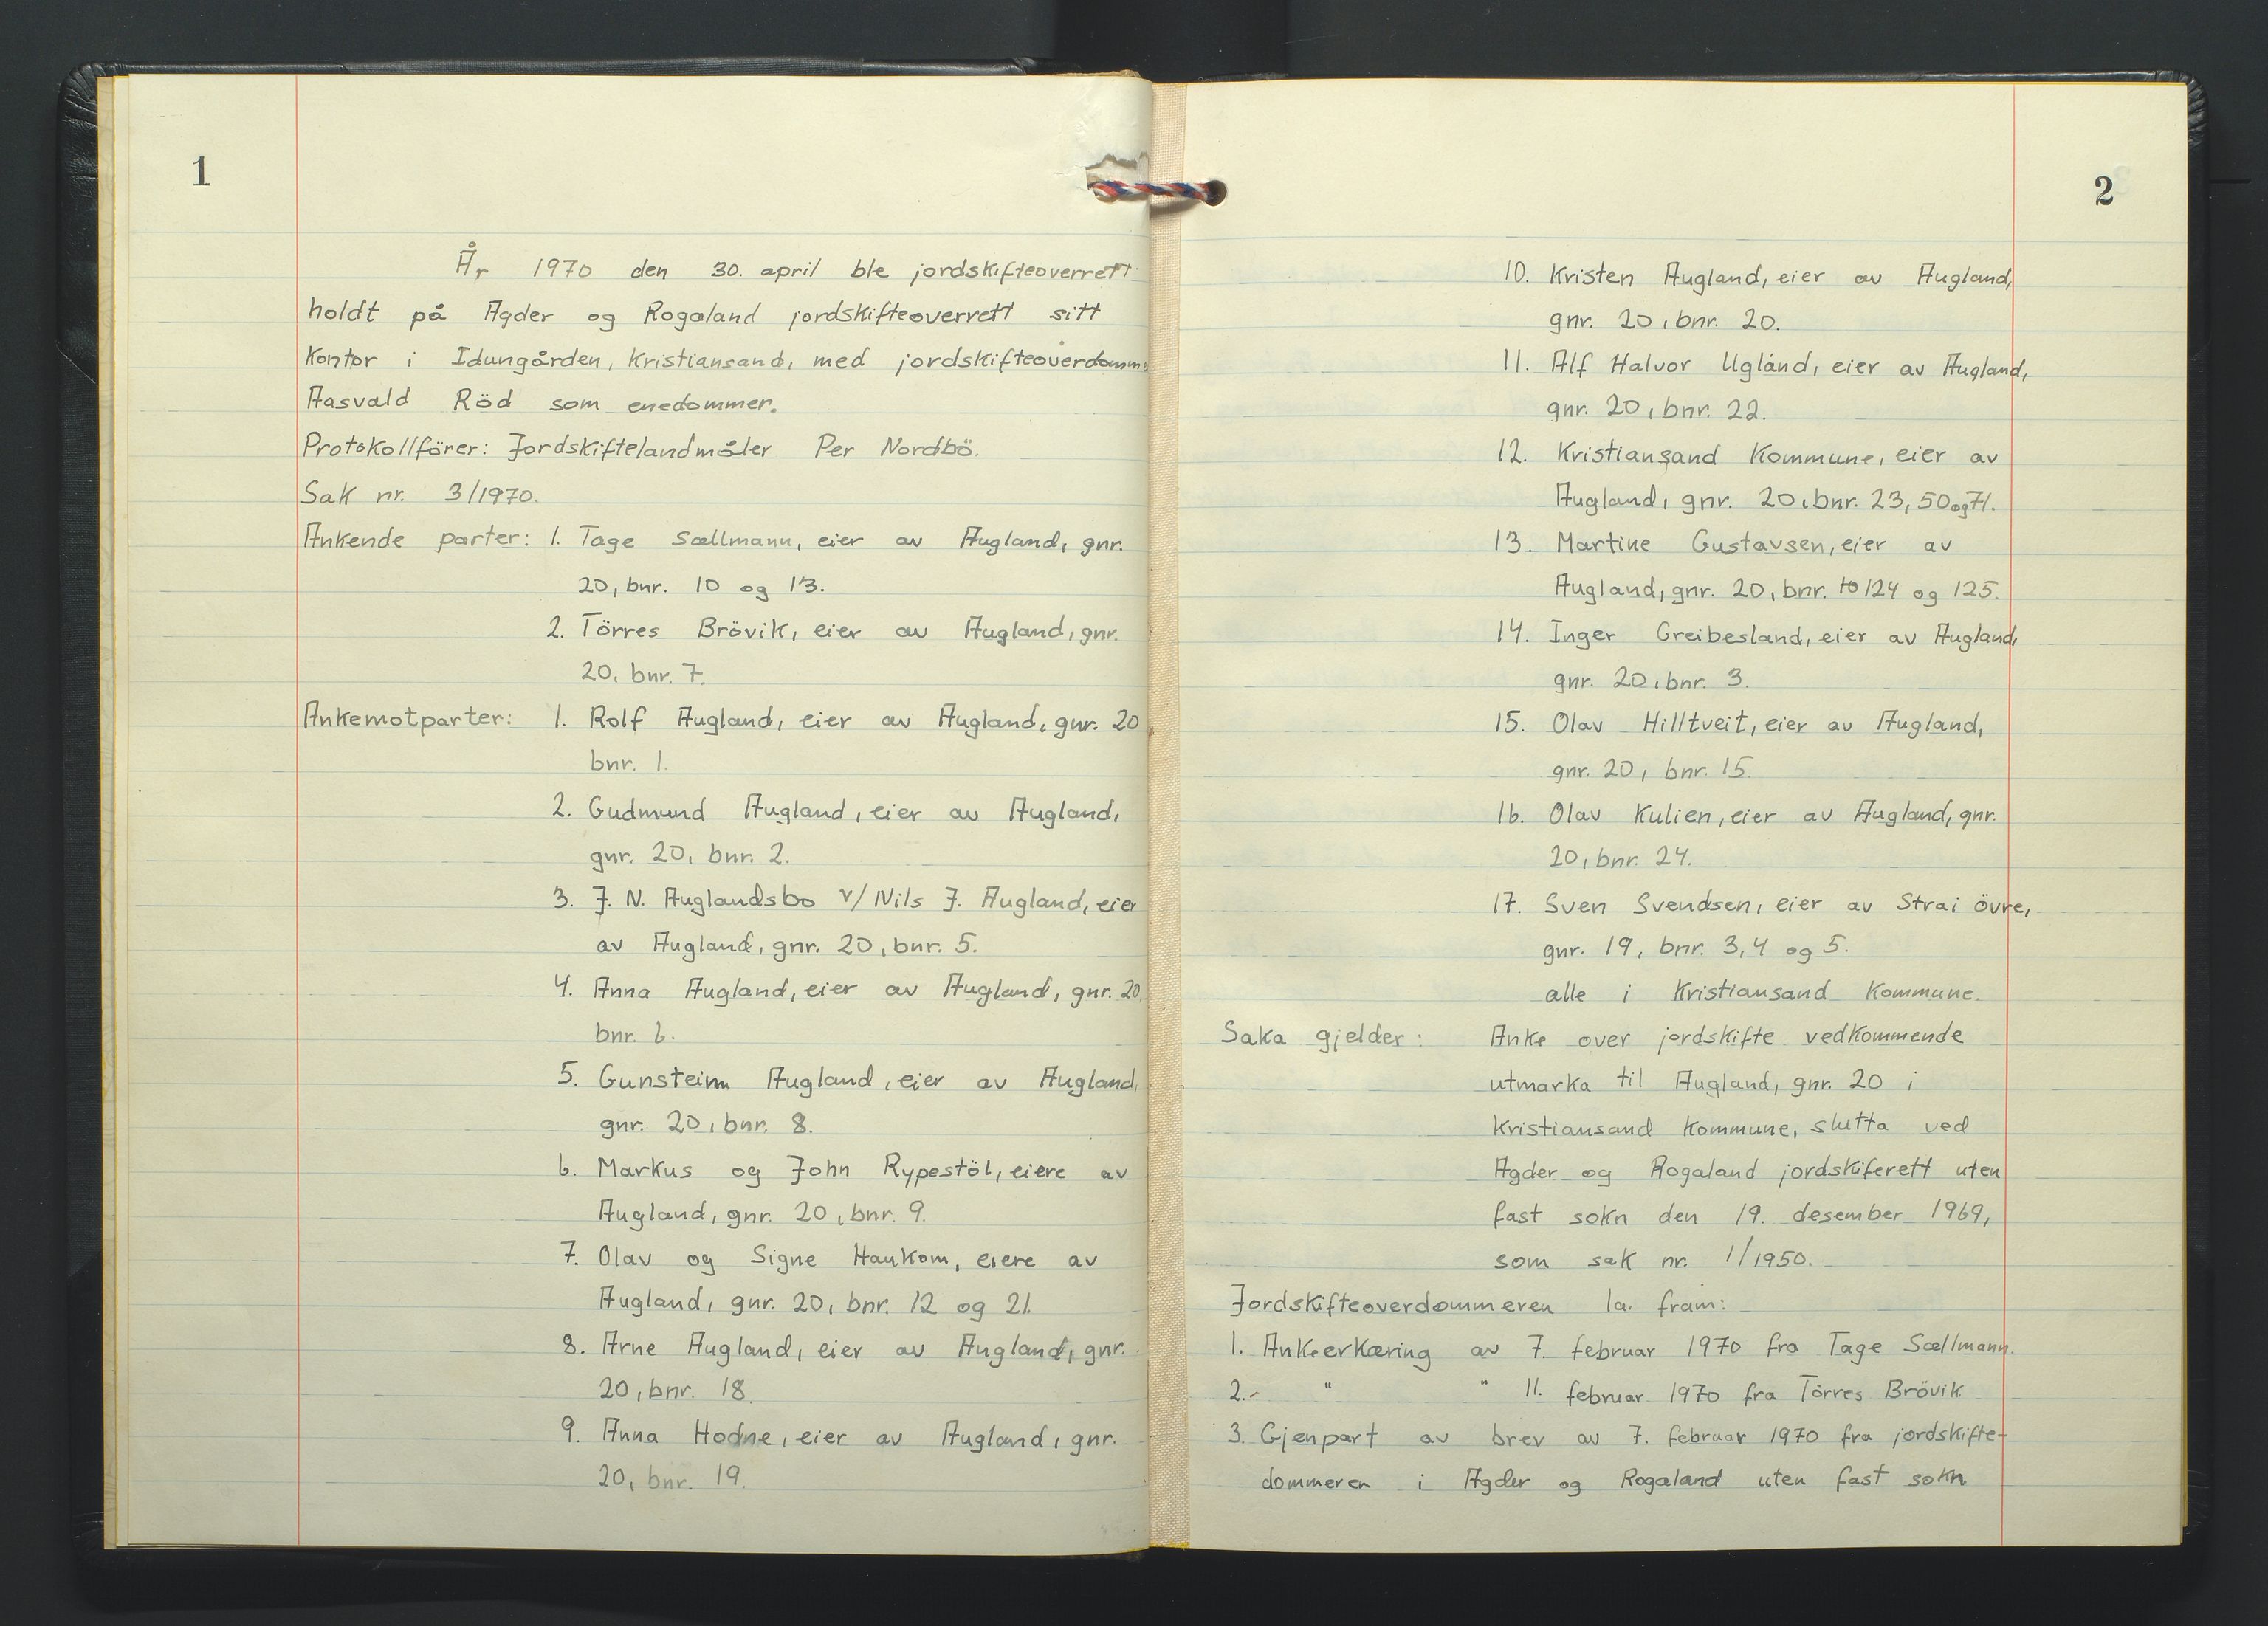 1
År 1970 den 30. april ble jordskifteoverrett
holdt på Agder og Rogaland jordskifteoverrett sitt
kontor i Idungården, Kristiansand, med jordskifteoverdomme
Aasvald Röd som enedommer.
Protokollförer: Jordskiftelandmåler Per Nordbö.
Sak nr. 3/1970.
Ankende parter: 1. Tage Sællmann, eier av Augland, gnr.
20, bnr. 10 og 13.
2. Törres Brövik, eier av Augland, gnr.
20, bnr. 7.
Ankemotparter: 1. Rolf Augland, eier av Augland, gnr. 20
bnr. 1.
2. Gudmund Augland, eier av Augland,
gnr. 20, bnr. 2.
3. J. N. Auglandsbo v/ Nils J. Augland, eier
av Augland, gnr. 20, bnr. 5.
4. Anna Augland, eier av Augland, gnr. 20,
bnr. 6.
5. Gunsteinn Augland, eier av Augland,
gnr. 20, bnr. 8.
6. Markus og John Rypestöl, eiere av
Augland, gnr. 20, bnr. 9.
7. Olav og Signe Haukom, eiere av
Augland, gnr. 20, bnr. 12 og 21.
8. Arne Augland, eier av Augland, gnr.
20, bnr. 18.
9. Anna Hodne, eier av Augland, gnr.
20, bnr. 19.
2
10. Kristen Augland, eier av Augland,
gnr. 20, bnr. 20.
11. Alf Halvor Ugland, eier av Augland,
gnr. 20, bnr. 22.
12. Kristiansand Kommune, eier av
Augland, gnr. 20, bnr. 23, 50 og 71.
13. Martine Gustavsen, eier av
Augland, gnr. 20, bnr. 10 124 og 125.
14. Inger Greibesland, eier av Augland,
gnr. 20, bnr. 3.
15. Olav Hilltveit, eier av Augland,
gnr. 20, bnr. 15.
16. Olav Kulien, eier av Augland, gnr.
20, bnr. 24.
17. Sven Svendsen, eier av Strai övre,
gnr. 19, bnr. 3, 4 og 5.
alle i Kristiansand Kommune.
Saka gjelder: Anke over jordskifte vedkommende
utmarka til Augland, gnr. 20 i
Kristiansand Kommune, slutta ved
Agder og Rogaland jordskiferett uten
fast sokn den 19. desember 1969,
som sak nr. 1/1950.
Jordskifteoverdommeren la. fram:
1. Ankeerkæring av 7. februar 1970 fra Tage Sællmann.
2.- " " 11. februar 1970 fra Törres Brövik
3. Gjenpart av brev av 7. februar 1970 fra jordskifte-
dommeren i Agder og Rogaland uten fast sokn